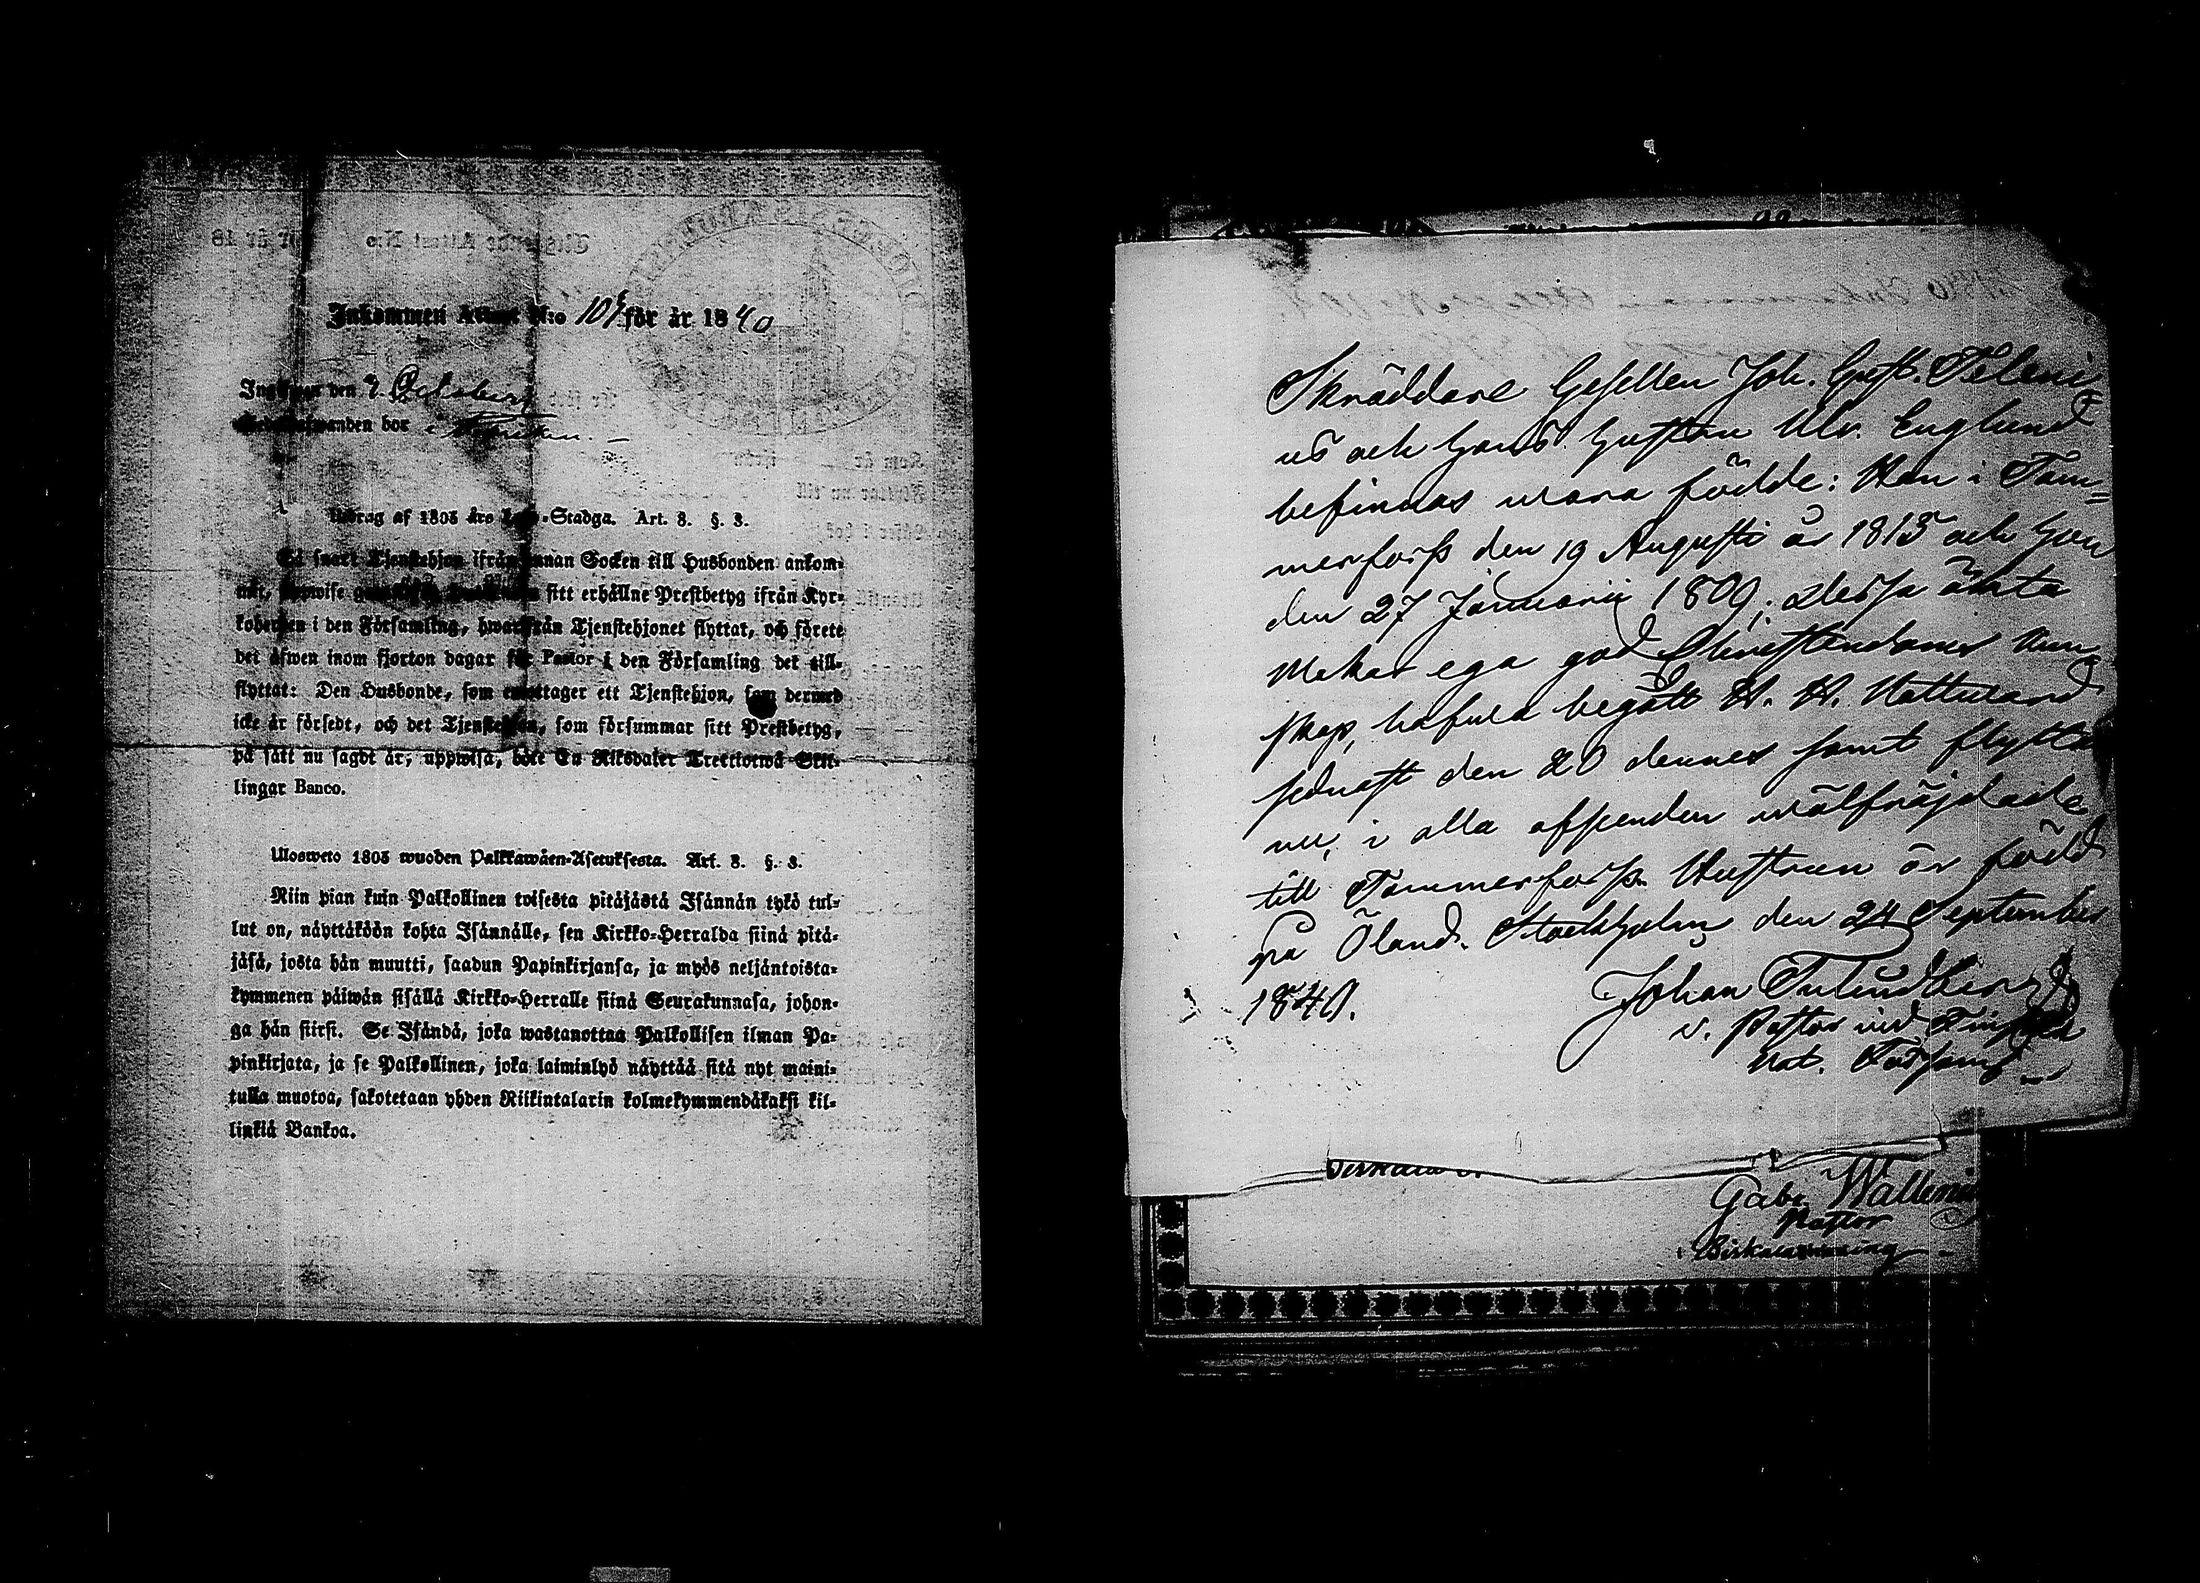 Inkommen Attest N:o 10 för år 1840
den 7. October
bor
Utdrag af 1805 års Lego-Stadga. Art. 8. §. 3.
Så snart Tjenstehjon ifrån annan Socken till Husbonden ankom-
mit, uppwise sitt erhållne Prestbetyg ifrån Kyr-
koherden i den Församling, hwarifrån Tjenstehjonet flyttat, och förete
det äfwen inom fjorton dagar för Pastor i den Församling det till-
flyttat: Den Husbonde, som emottager ett Tjenstehjon, som dermed
icke är försedt, och det Tjenstehjon, som försummar sitt Prestbetyg,
på sätt nu sagdt är, uppwisa, böte En Riksdaler Trettiotwå Skil-
lingar Banco.
Ulosweto 1805 wuoden Palkkawäen-Asetuksesta. Art. 8. §. 3.
Niin pian kuin Palkollinen toisesta pitäjästä Isännän tykö tul-
lut on, näyttäköön kohta Isännälle, sen Kirkko-Herralda siinä pitä-
jäsä, josta hän muutti, saadun Papinkirjansa, ja myös neljäntoista-
kymmenen päiwän sisällä Kirkko-Herralle siinä Seurakunnasa, johon-
ga hän siirsi. Se Isändä, joka wastanottaa Palkollisen ilman Pa-
pinkirjata, ja se Palkollinen, joka laiminlyö näyttää sitä nyt maini-
tulla muotoa, sakotetaan yhden Riikintalarin kolmekymmendäkaksi kil-
linkiä Bankoa.
Skräddare Gesellen Joh. Gust. Seleni-
us och hans hustru Ulr. Englund
befinnas wara födde: Han i Tam-
merfors den 19 Augusti år 1813 och hon
den 27 Januarii 1809; dessa äkta
Makar ega god Christendoms kun-
skap, hafwa begått H. H. Nattward
sednast den 20 dennes samt flytta
nu, i alla afseenden wälfräjdade
till Tammerfors. Hustrun är född
på Åland. Stockholm den 24 September
1840.
Johan
v. Pastor wid Finska
Nat. Församl.
Gabr. Wallenius
Pastor
i Birkala